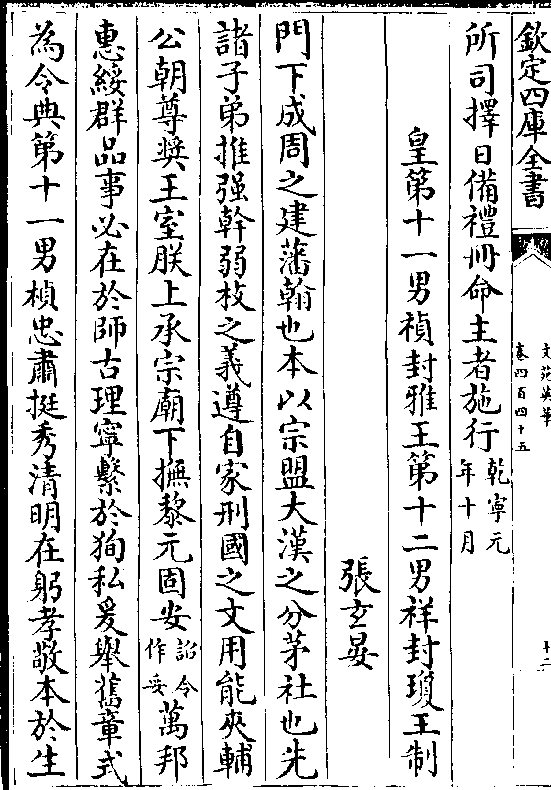 欽定四庫全書
文苑英華
卷四百四十五
十二
所司擇日備禮冊命主者施行乾寧元年十月
皇第十一男禎封雅王第十二男祥封瓊王制
張玄晏
門下成周之建藩翰也本以宗盟大漢之分茅社也先
諸子弟推强幹弱枝之義遵自家刑國之文用能夾輔
公朝尊奬王室朕上承宗廟下撫黎元固安詔令作妥萬邦
惠綏群品事必在於師古理寧繫於狥私爰舉舊章式
為令典第十一男楨忠肅挺秀清明在躬孝敬本於生